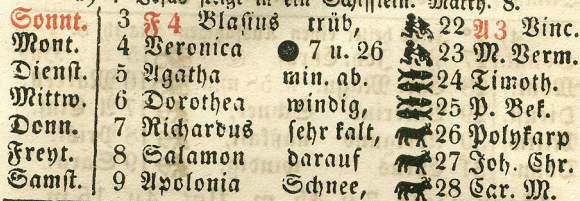 Sonnt. 3 F 4 Blasius trüb, 22 A 3 Vinc.
Mont. 4 Veronica 7 u. 26 23 M. Verm.
Dienst. 5 Agatha min. ab. 24 Timoth.
Mittw. 6 Dorothea windig, 25 P. Bek.
Donn. 7 Richardus sehr kalt, 26 Polykarp
Freyt. 8 Salamon darauf 27 Joh. Chr.
Samst. 9 Apolonia Schnee, 28 Car. M.